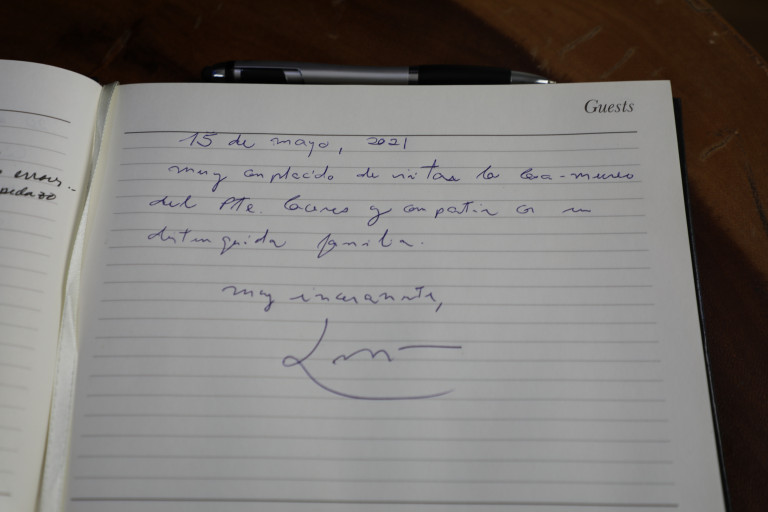 Guests
15 de mayo, 2021
muy complacido de visitar la Casa-museo
del Pte. Cáceres y compartir con su
distinguida familia.
muy sinceramente,
pedazo